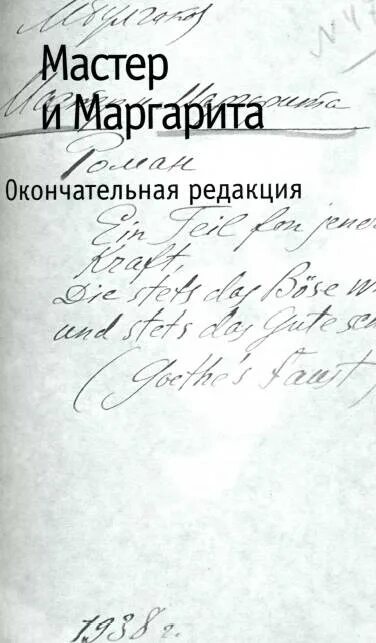 МБулгаков
Мастер
Мастер и Маргарита
и Маргарита
Роман
Окончательная редакция
Ein Teil fon jene
Kraft,
Die stets das Böse w
und stets das Gute sc
(Goethe's Faust)
1938 г.